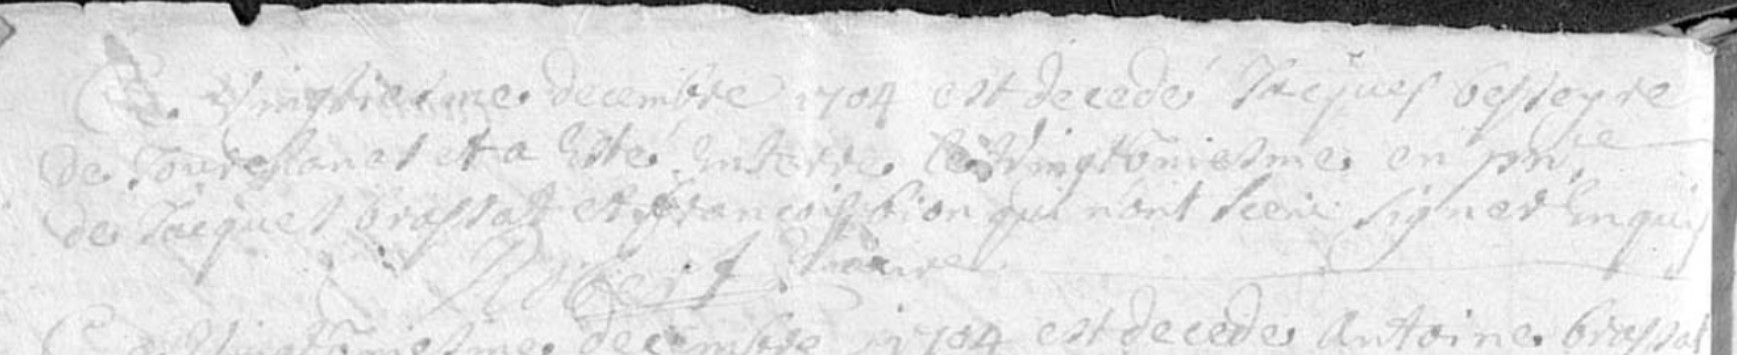 Ce vingtiesme decembre 1704 est decedé Jacques besseyre
de Toureslanat et a esté enterre le vingtuniesme en pnce
de Jacques brassat et francois bion qui n'ont sceu signer enquis
Robert vicaire
Ce vingtuniesme decembre 1704 est decede Antoine brassat